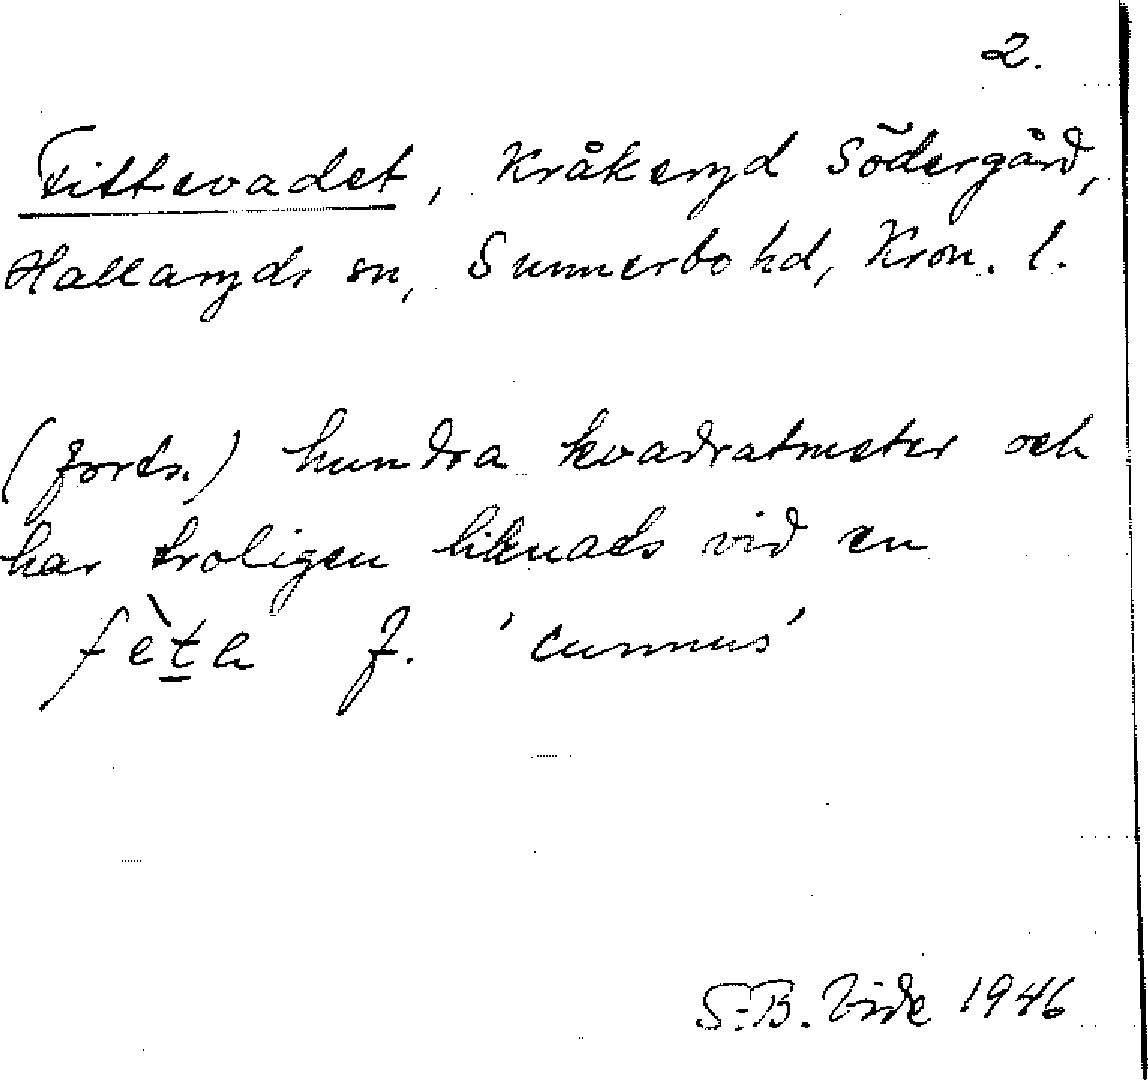 2.
Fittevadet, Kråkeryd Södergård,
Hallaryds sn, Sunnerbo hd, Kron. l.
(forts.) hundra kvadratmeter och
har troligen liknats vid en
fèta f. 'cunnus'
S-B. Vide 1946